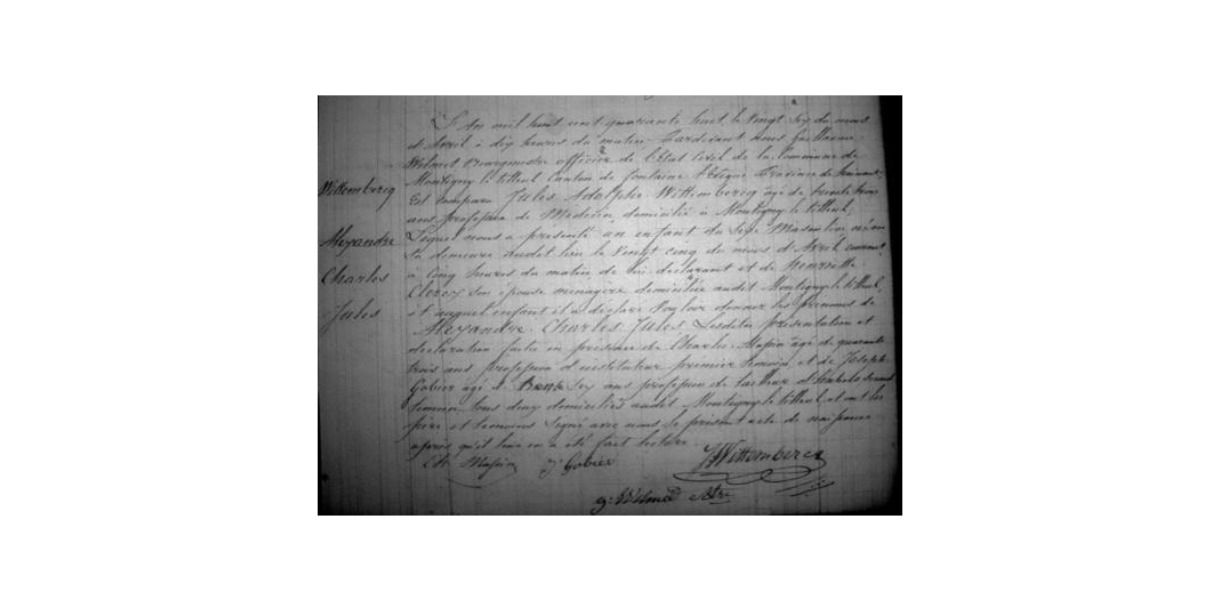 L'An mil huit cent quarante huit le Vingt Six du mois
d'Avril à dix heures du matin Pardevant nous Guillaume
Wilmet Bourgmestre officier de l'Etat Civil de la Commune de
Wittembercq
Montigny le tilleul Canton de fontaine l'Evêque Province de hainaut
Est comparu Jules Adolphe Wittembercq âgé de trente trois
ans profession de Médecin, domicilié à Montigny le tilleul,
Alexandre
Lequel nous a présenté un enfant du Sexe Masculin né en
Sa demeure audit lieu le Vingt cinq du mois d'Avril courant
Charles
à cinq heures du matin de lui déclarant et de Henriette
Clercx son épouse ménagère domiciliée audit Montigny le tilleul,
Jules
et auquel enfant il a déclaré Vouloir donner les prénoms de
Alexandre Charles Jules Lesdites présentation et
déclaration faites en présence de Charles Massin âgé de quarante
trois ans profession d'instituteur premier témoin, et de Joseph
Gobier âgé de trente Six ans profession de tailleur d'habits second
témoin, tous deux domiciliés audit Montigny le tilleul, et ont les
père et témoins Signé avec nous le présent acte de naissance
après qu'il leur en a été fait lecture
Ch. Massin J. Gobier JWittembercq
g: Wilmet